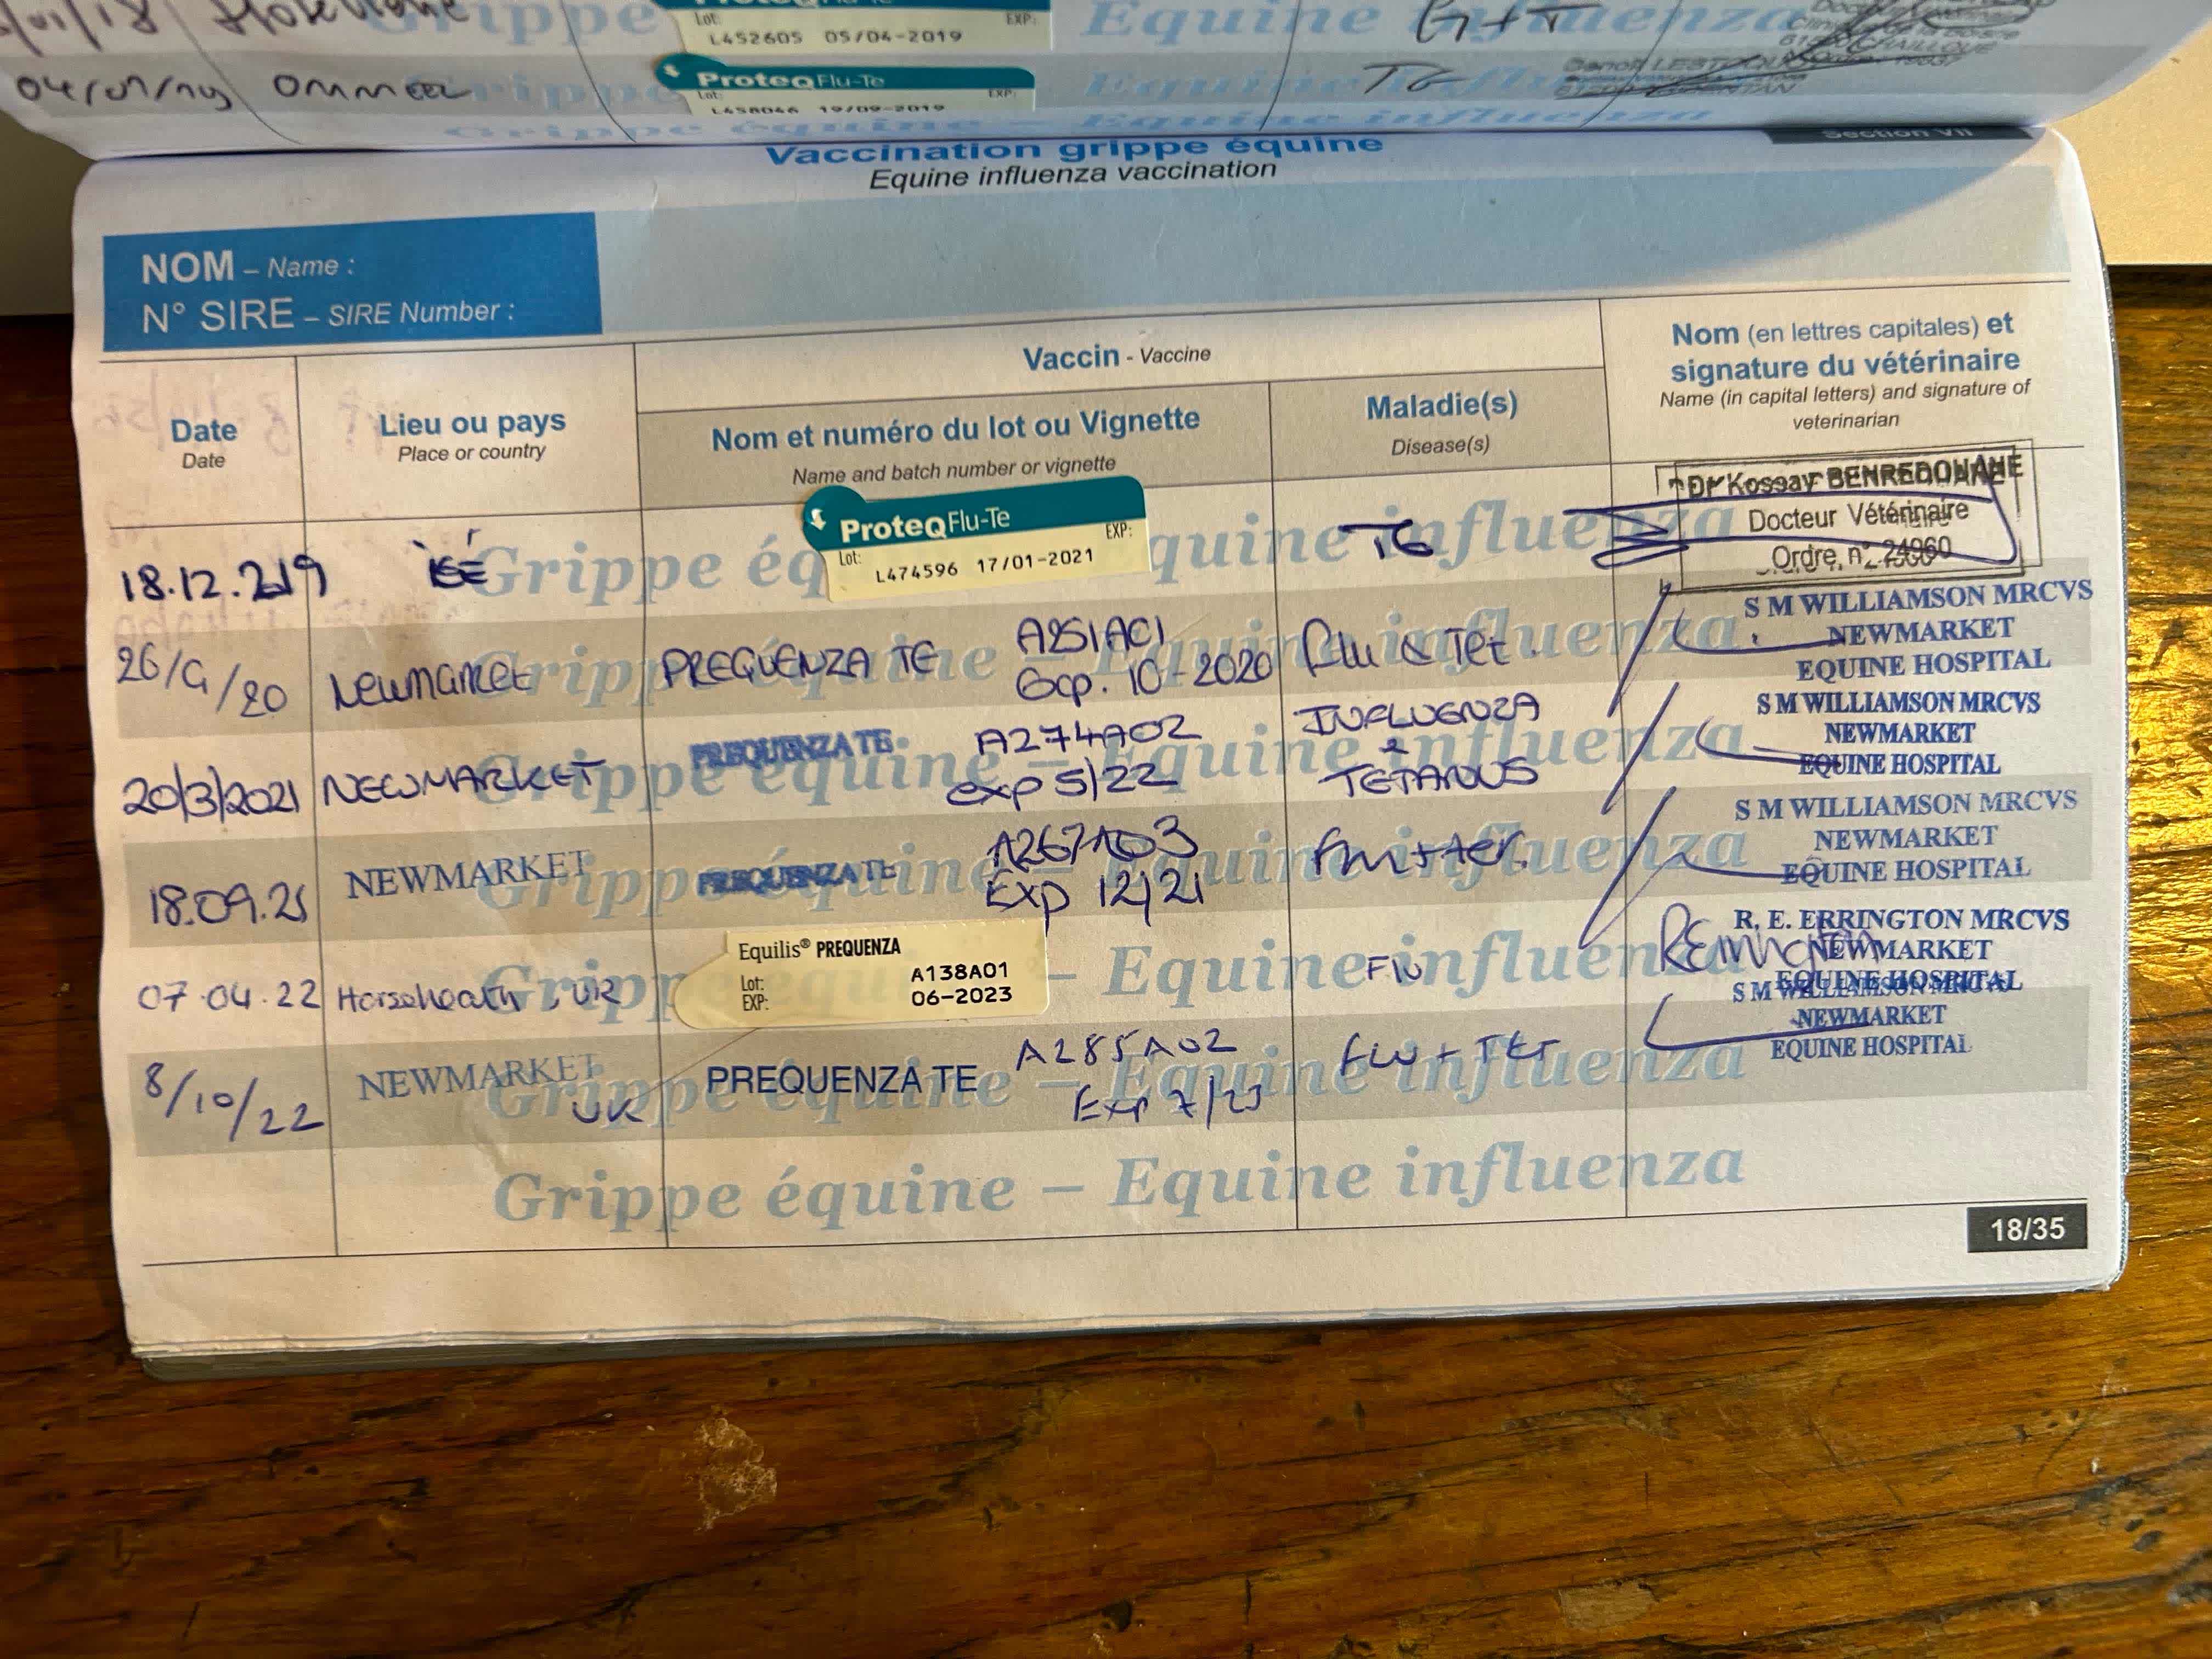 Grippe Equine influenza
Lot: EXP:
L452605 05/04-2019
G+T
04/07/19 Ommeel ProteqFlu-Te TG
Lot: EXP:
L458046 19/09-2019
Grippe équine – Equine influenza
Section VII
Vaccination grippe équine
Equine influenza vaccination
NOM – Name :
N° SIRE – SIRE Number :
Date
Date
Lieu ou pays
Place or country
Vaccin - Vaccine
Nom et numéro du lot ou Vignette
Name and batch number or vignette
Maladie(s)
Disease(s)
Nom (en lettres capitales) et
signature du vétérinaire
Name (in capital letters) and signature of
veterinarian
18.12.219
ProteqFlu-Te
Lot: EXP:
L474596 17/01-2021
TG
Dr Kossay BENREDOUANE
Docteur Vétérinaire
Ordre. n° 24960
Grippe équine influenza
26/9/20 Newmarket PREQUENZA TE A251AC1
Exp. 10-2020
Flu & Tet.
S M WILLIAMSON MRCVS
NEWMARKET
EQUINE HOSPITAL
20/3/2021 NEWMARKET PREQUENZA TE A274A02
exp 5/22
INFLUENZA
&
TETANUS
S M WILLIAMSON MRCVS
NEWMARKET
EQUINE HOSPITAL
18.09.21 NEWMARKET PREQUENZA TE A267A03
Exp 12/21
Flu + tet.
S M WILLIAMSON MRCVS
NEWMARKET
EQUINE HOSPITAL
07.04.22 Horseheath, UK
Equilis® PREQUENZA
Lot: A138A01
EXP: 06-2023
Flu
R. E. ERRINGTON MRCVS
NEWMARKET
EQUINE HOSPITAL
8/10/22 NEWMARKET
UK
PREQUENZA TE A285A02
Exp 7/23
FLU + TET
S M WILLIAMSON MRCVS
NEWMARKET
EQUINE HOSPITAL
Grippe équine – Equine influenza
18/35